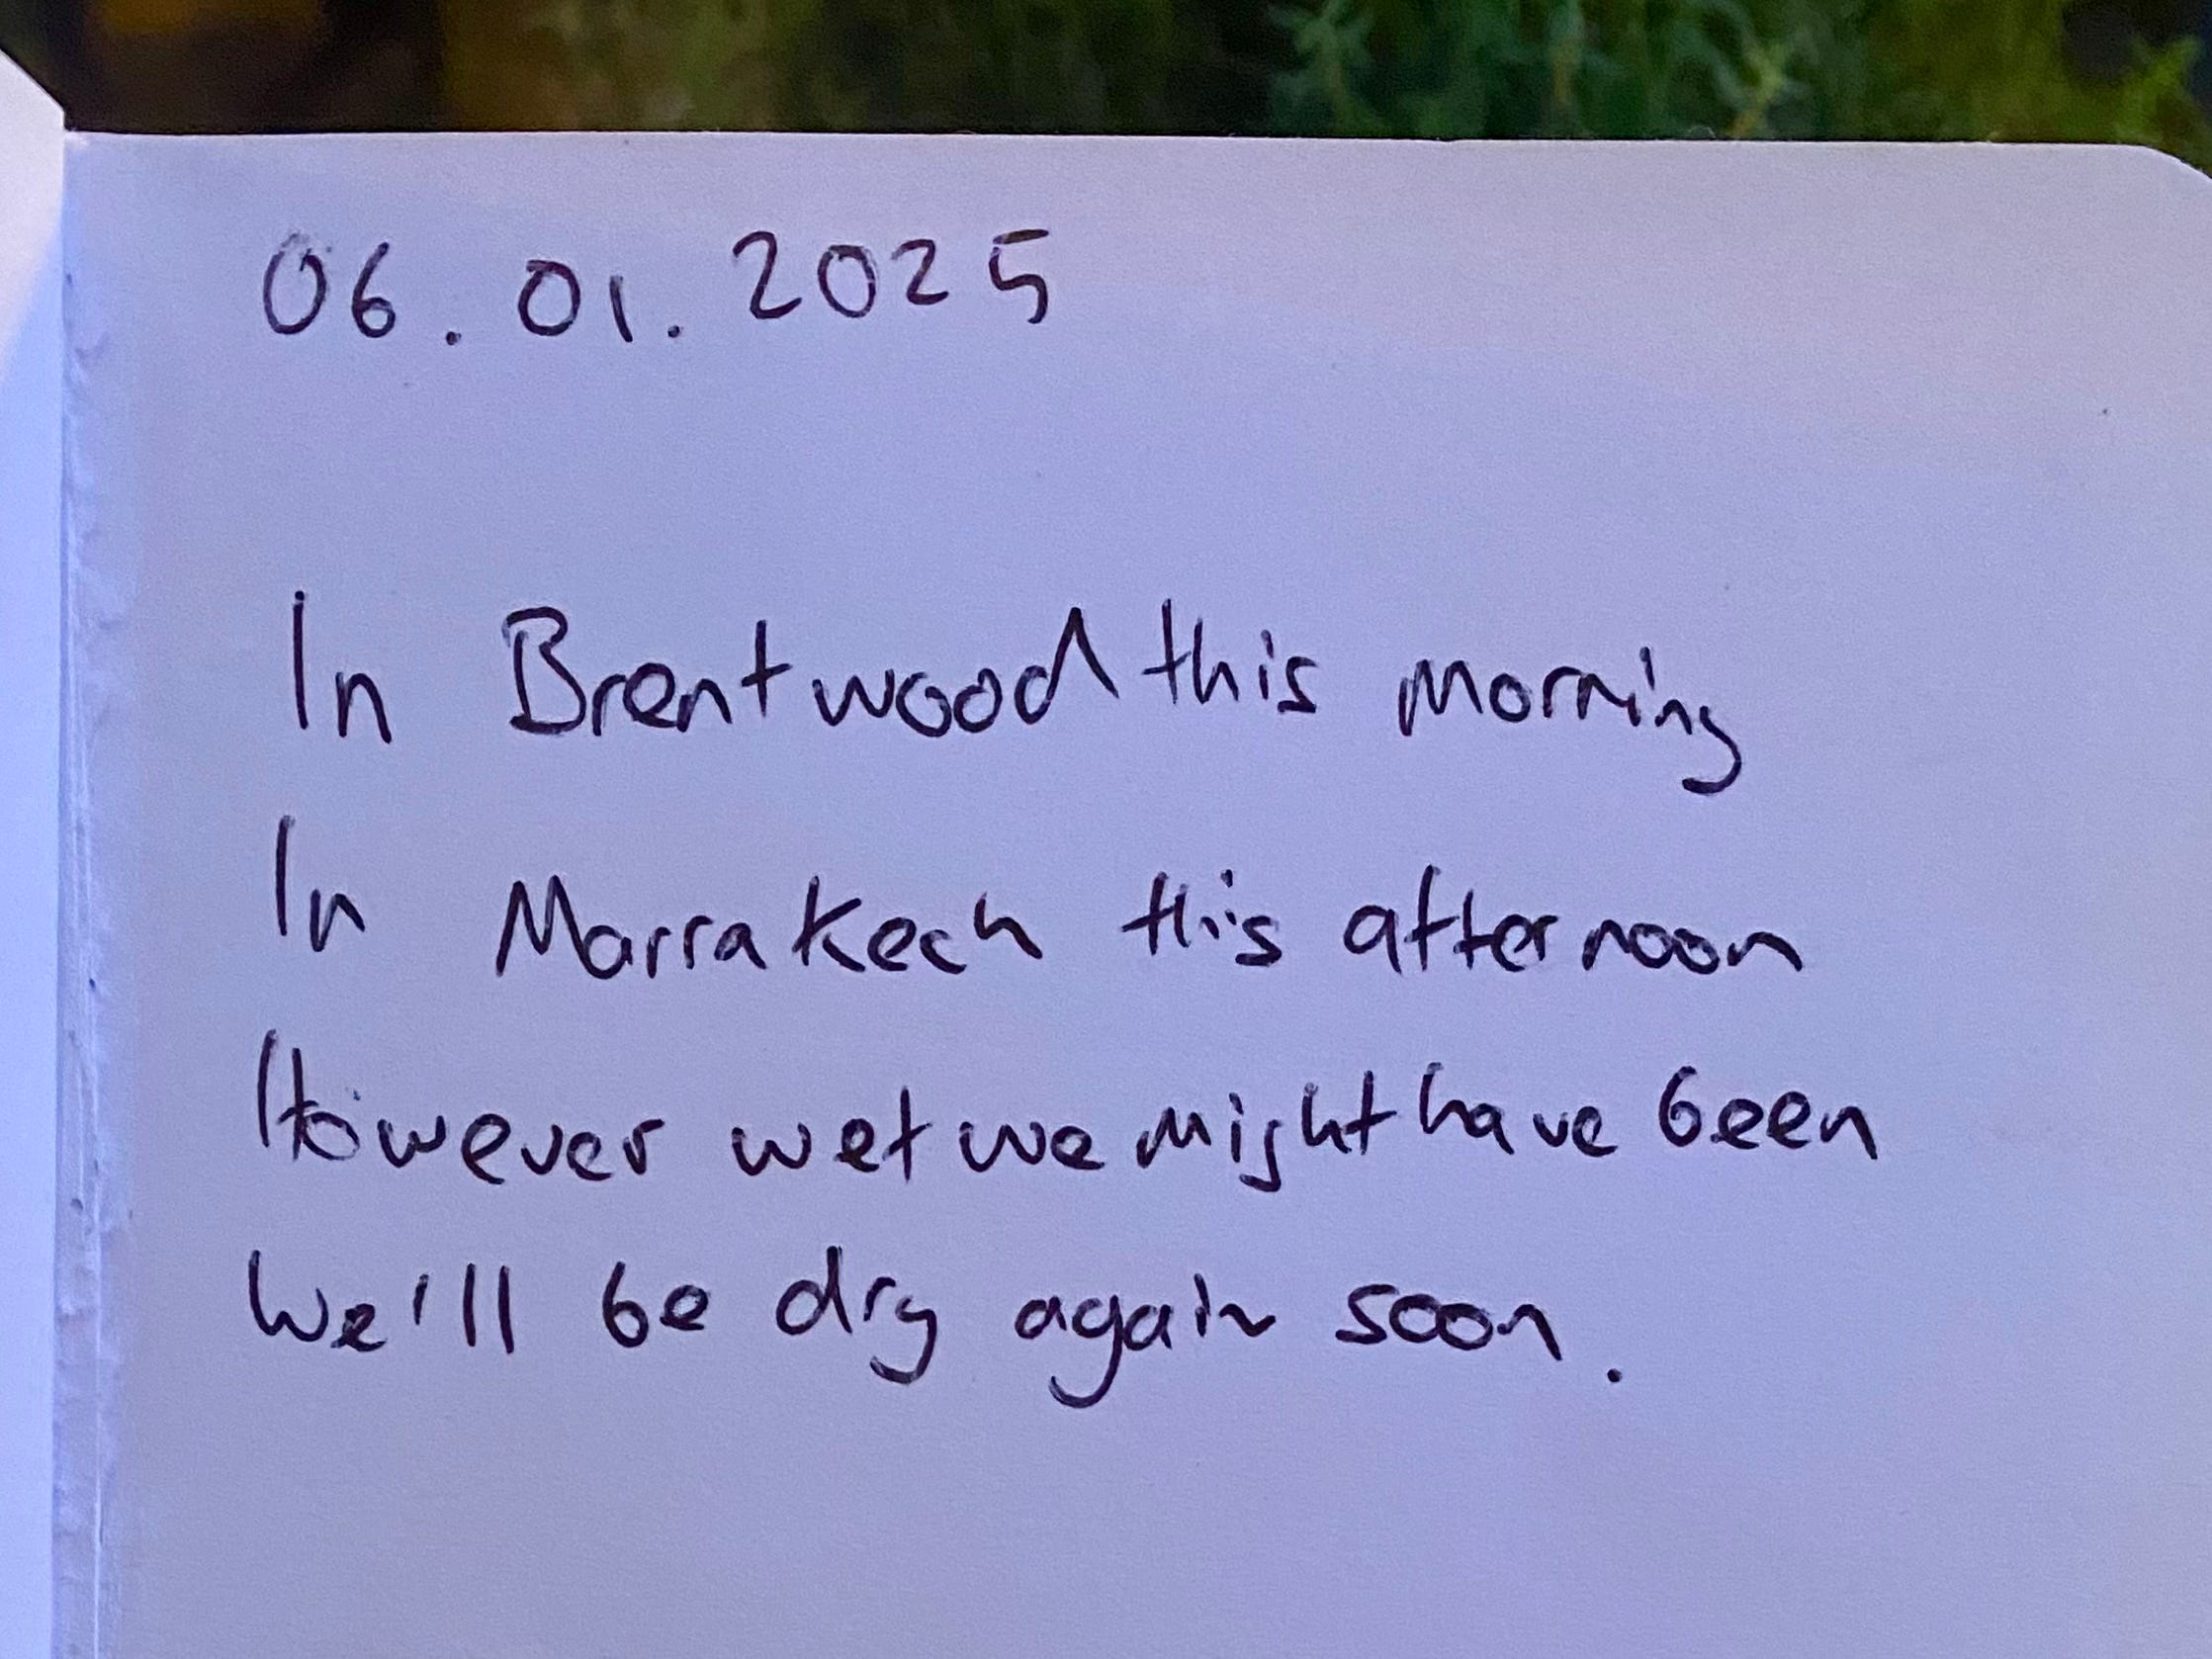 06.01.2025
In Brentwood this morning
In Marrakech this afternoon
However wet we might have been
We'll be dry again soon.